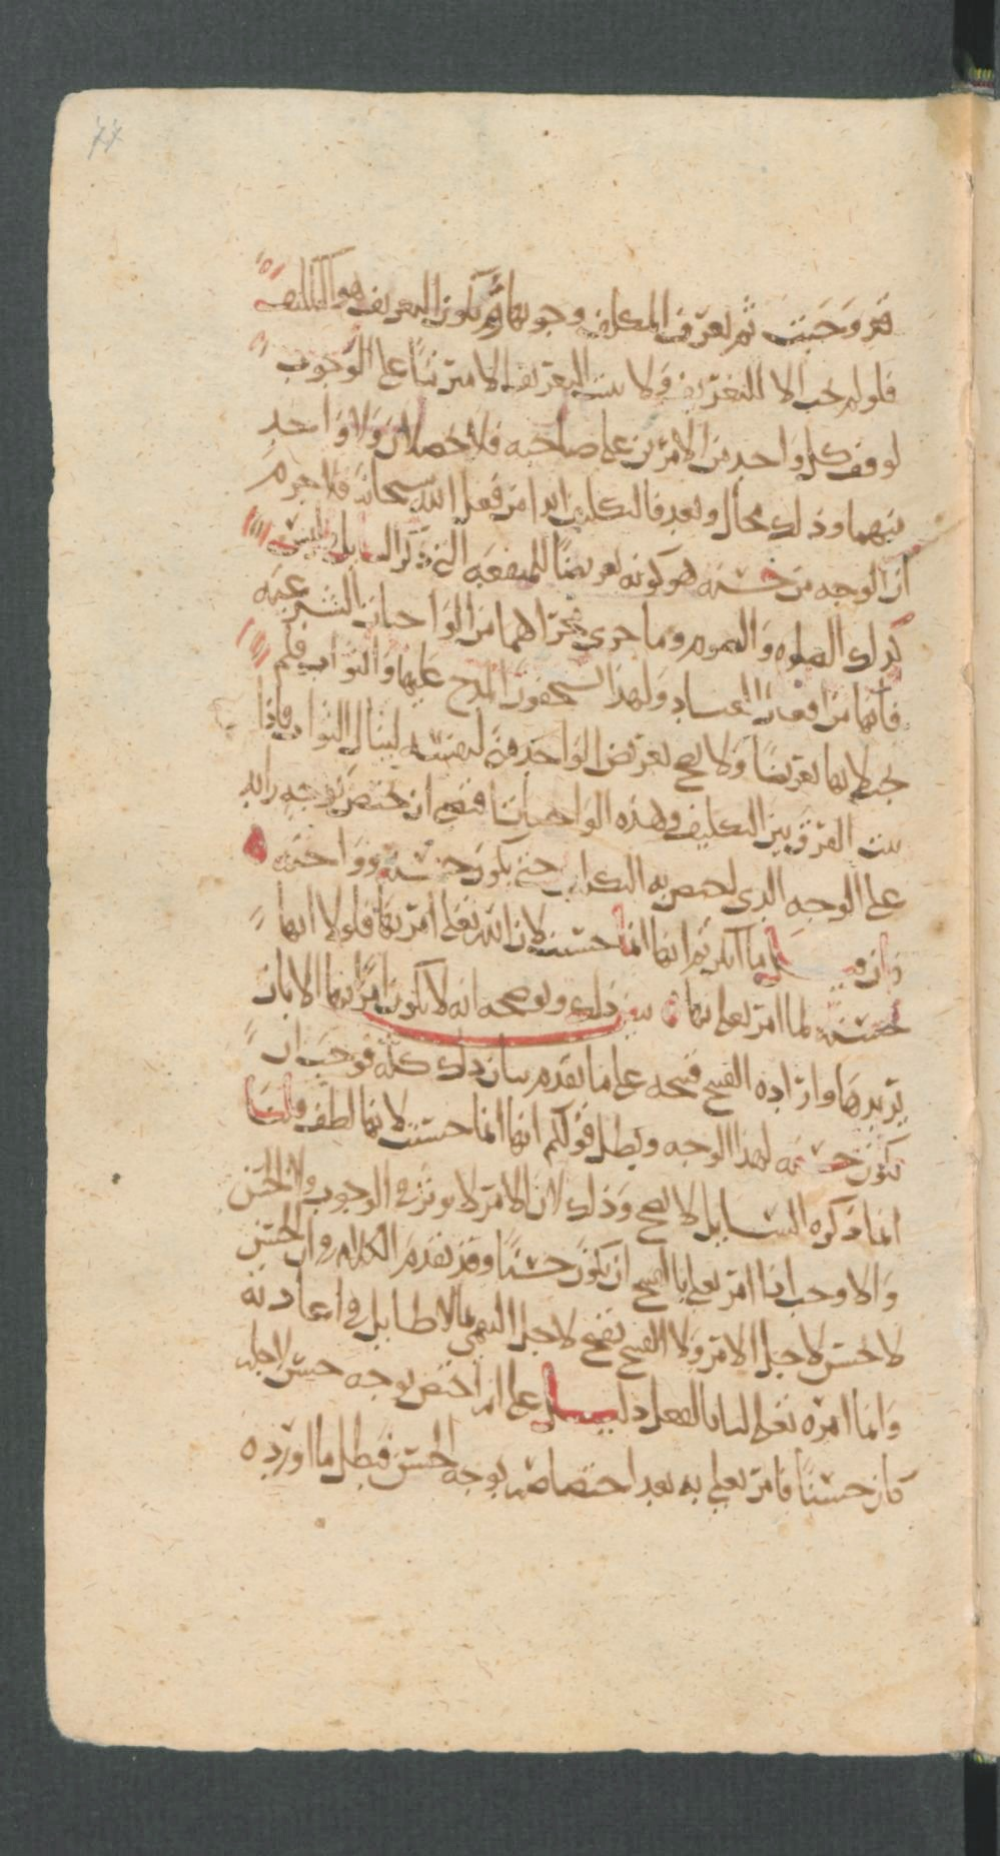 قد وجبت ثم تعرف المكلف وجوبها ثم يكون التعريف هو التكليف
فلو لم تجب الا للتعريف ولا يثبت التعريف الا مترتبًا على الوجوب
لوقف كل واحد من الامرين على صاحبه فلا يحصلان ولا واحد
منهما وذلك محال وبعد فالتكليف ايضا من فعل الله سبحانه فلا جرم
ان الوجه من حسنه هو كونه تعريضًا للمنفعه التي ذكر السايل وليس
كذلك الصلوه والصوم وما جرى مجراهما من الواجبات الشرعيه
فانها من افعال العباد ولهذا يستحقون المدح عليها والثواب فلم
تجب لانها تعريضًا ولا يصح تعريض الواحد منا لنفسه لينال الثواب فاذا
ثبت الفرق بين التكليف وهذه الواجبات فيجب ان تختص بوجه زايد
على الوجه الذي يختص به التكليف حتى يكون حسنه وواجبه
فان قيل ما انكرتم انها انما حسنت لان الله تعلى امر بها فلولا انها
حسنه لما امر تعلى بها يبين ذلك ويوضحه انه لا يكون امرًا بها الا بان
يريدها وارادة القبيح قبيحه على ما تقدم بيان ذلك كله فوجب ان
تكون حسنه لهذا الوجه وبطل قولكم انها انما حسنت لانها لطف قلنا
انما ذكره السايل لا يصح وذلك لان الامر لا يوثر في الوجوب ولا الحسن
والا وجب اذا امر تعلى بالقبيح ان يكون حسنًا وقد تقدم الكلام في ان الحسن
لا يحسن لاجل الامر ولا القبيح يقبح لاجل النهي بما لا طايل في اعادته
وانما امره تعلى لنا بالفعل دليل على انه اختص بوجه حسن لاجله
كان حسنًا فامر تعلى به بعد اختصاصه بوجه الحسن فبطل ما اورده